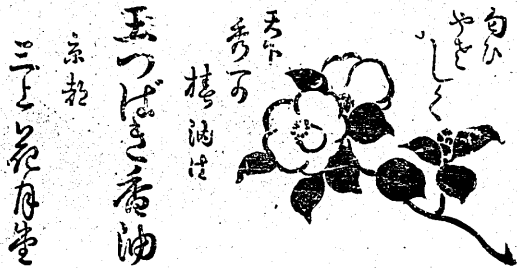 匂ひ
やさ
しく
天下
秀
椿油は
玉つばき香油
京都
三上花月堂